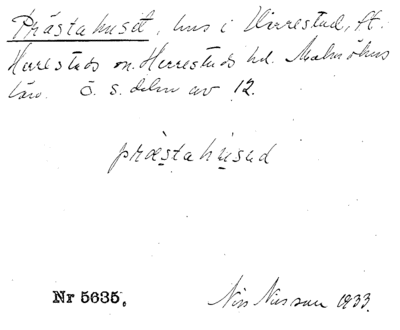 Prästahuset, hus i Virrestad, ft.
Herrestads sn. Herrestads hd. Malmöhus
län. Ö. s. delen av 12.
præstahusad
Nr 5635.
Nils Nilsson 1933.